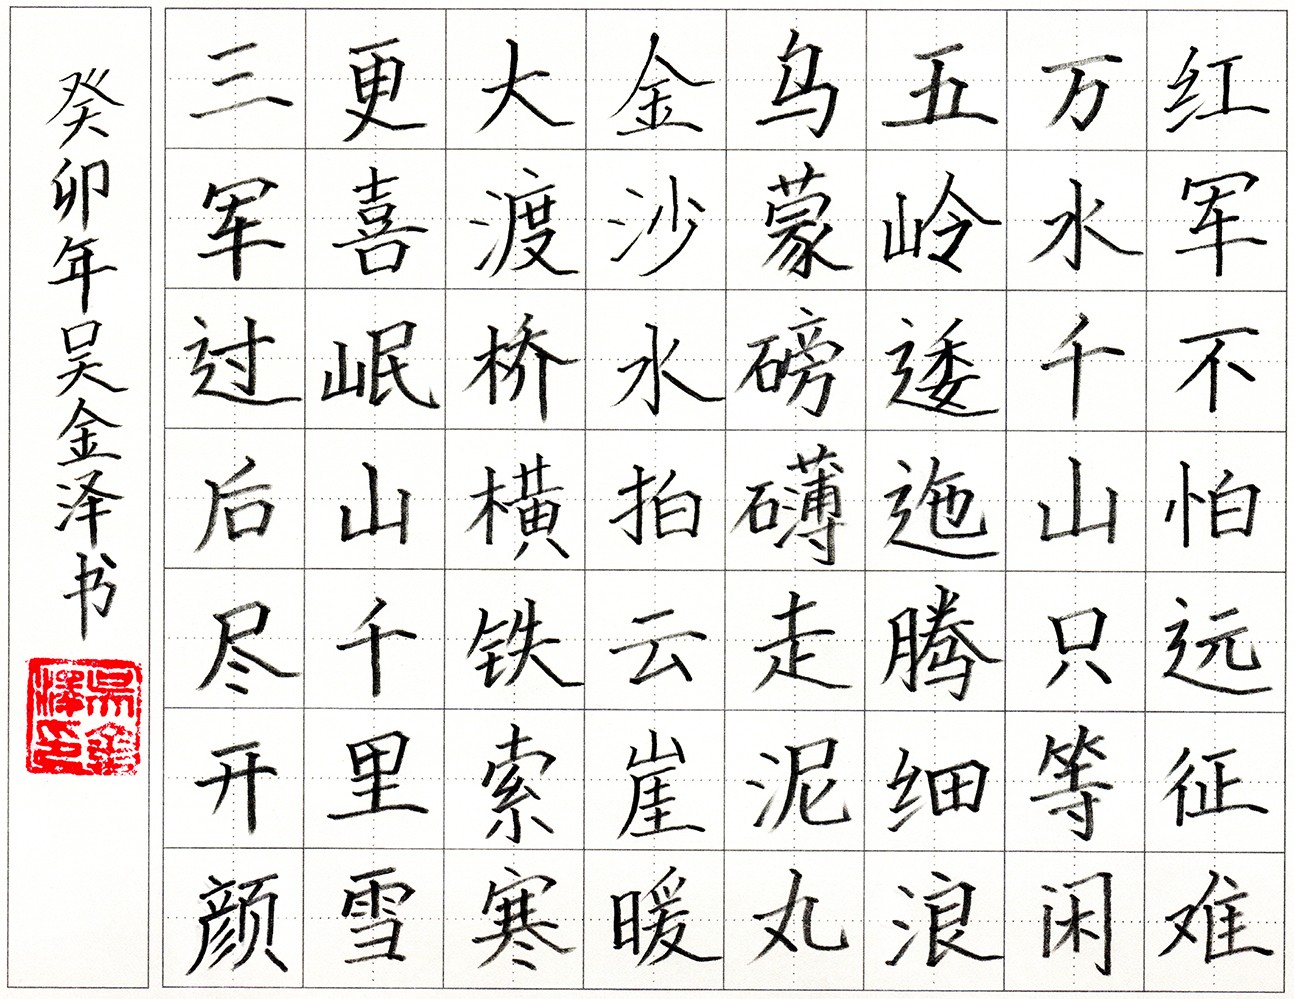 红军不怕远征难
万水千山只等闲
五岭逶迤腾细浪
乌蒙磅礴走泥丸
金沙水拍云崖暖
大渡桥横铁索寒
更喜岷山千里雪
三军过后尽开颜
癸卯年吴金泽书
吴金泽印